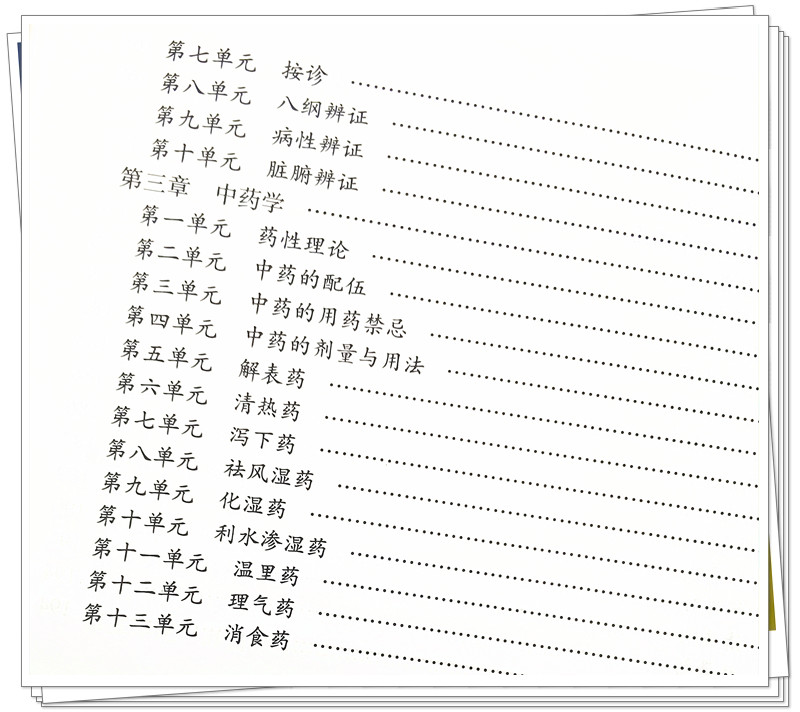 第七单元 按诊
第八单元 八纲辨证
第九单元 病性辨证
第十单元 脏腑辨证
第三章 中药学
第一单元 药性理论
第二单元 中药的配伍
第三单元 中药的用药禁忌
第四单元 中药的剂量与用法
第五单元 解表药
第六单元 清热药
第七单元 泻下药
第八单元 祛风湿药
第九单元 化湿药
第十单元 利水渗湿药
第十一单元 温里药
第十二单元 理气药
第十三单元 消食药